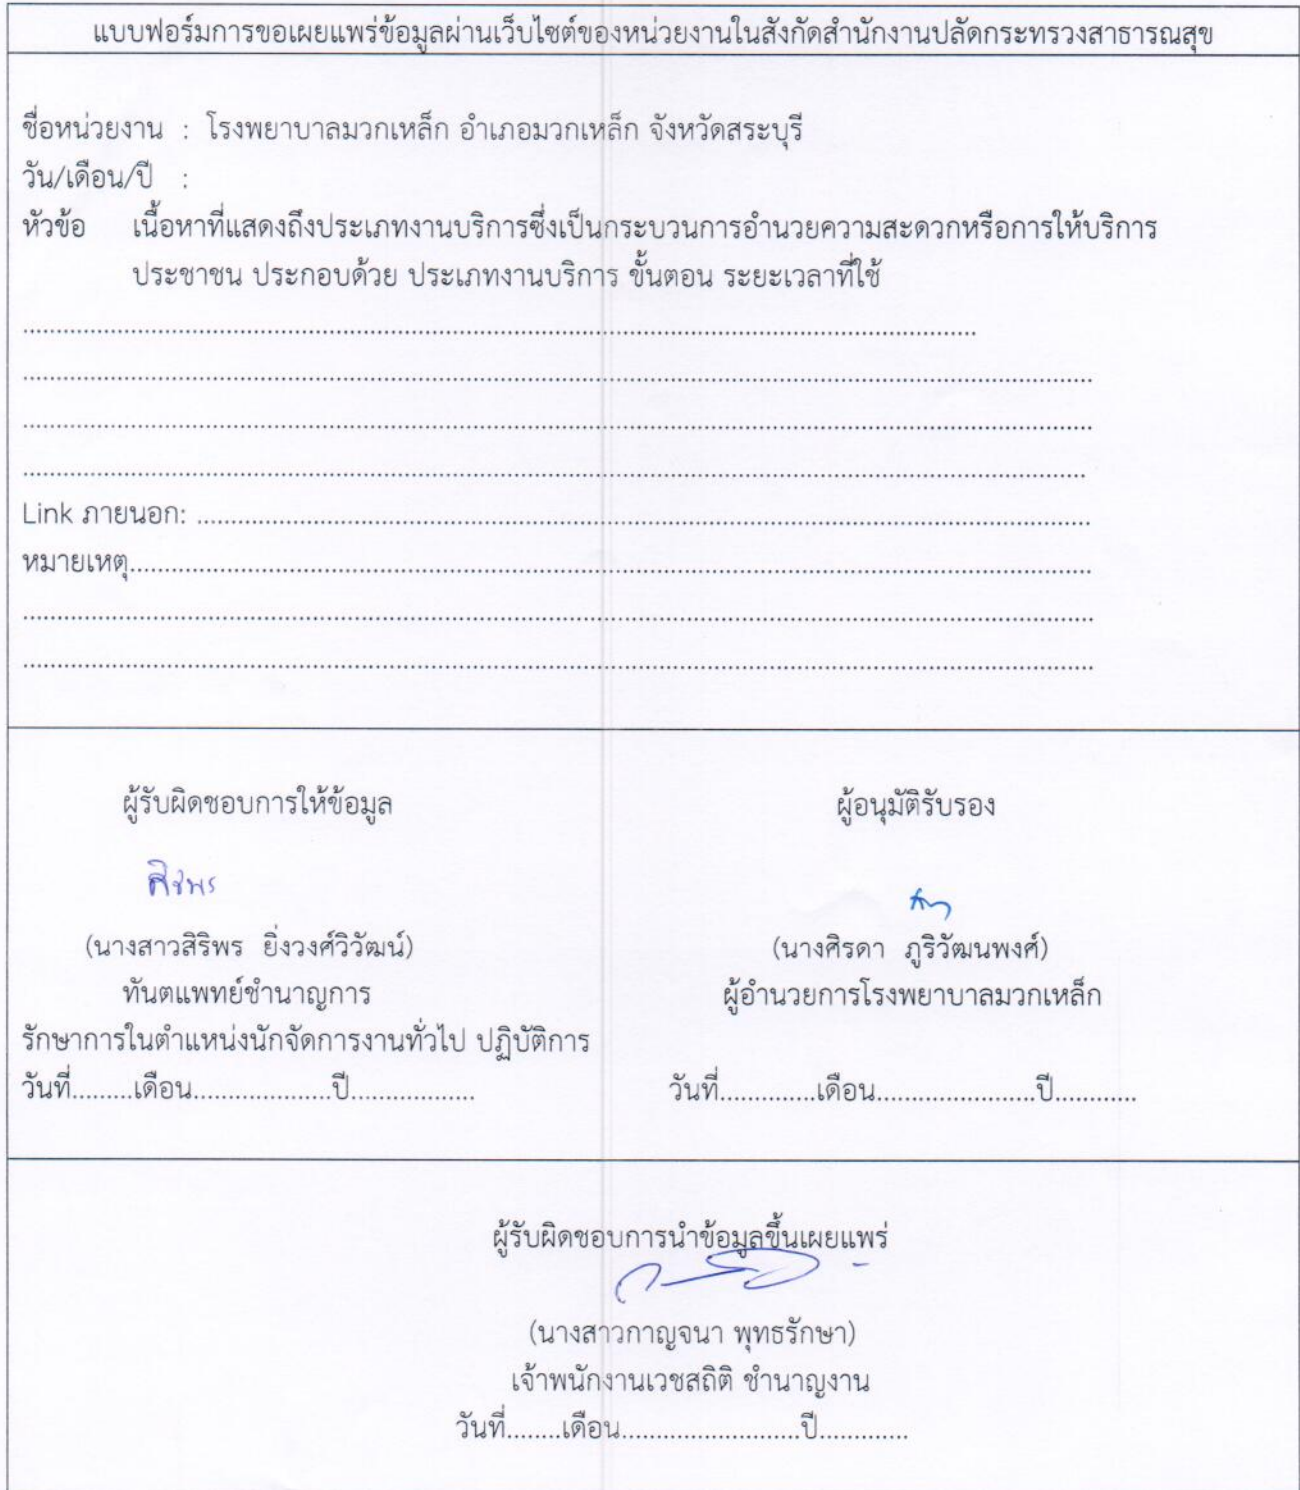 แบบฟอร์มการขอเผยแพร่ข้อมูลผ่านเว็บไซต์ของหน่วยงานในสังกัดสำนักงานปลัดกระทรวงสาธารณสุข
ชื่อหน่วยงาน : โรงพยาบาลมวกเหล็ก อำเภอมวกเหล็ก จังหวัดสระบุรี
วัน/เดือน/ปี :
หัวข้อ เนื้อหาที่แสดงถึงประเภทงานบริการซึ่งเป็นกระบวนการอำนวยความสะดวกหรือการให้บริการ
ประชาชน ประกอบด้วย ประเภทงานบริการ ขั้นตอน ระยะเวลาที่ใช้
Link ภายนอก: ..........
หมายเหตุ..........
ผู้รับผิดชอบการให้ข้อมูล ผู้อนุมัติรับรอง
(นางสาวสิริพร ยิ่งวงศ์วิวัฒน์) (นางศิรดา ภูริวัฒนพงศ์)
ทันตแพทย์ชำนาญการ ผู้อำนวยการโรงพยาบาลมวกเหล็ก
รักษาการในตำแหน่งนักจัดการงานทั่วไป ปฏิบัติการ
วันที่.........เดือน....................ปี.................. วันที่..............เดือน.......................ปี............
ผู้รับผิดชอบการนำข้อมูลขึ้นเผยแพร่
(นางสาวกาญจนา พุทธรักษา)
เจ้าพนักงานเวชสถิติ ชำนาญงาน
วันที่........เดือน..........................ปี.............